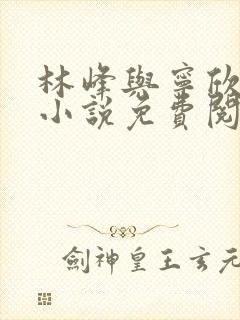 林峰與寧欣
小說免費閱
劍神皇王玄元